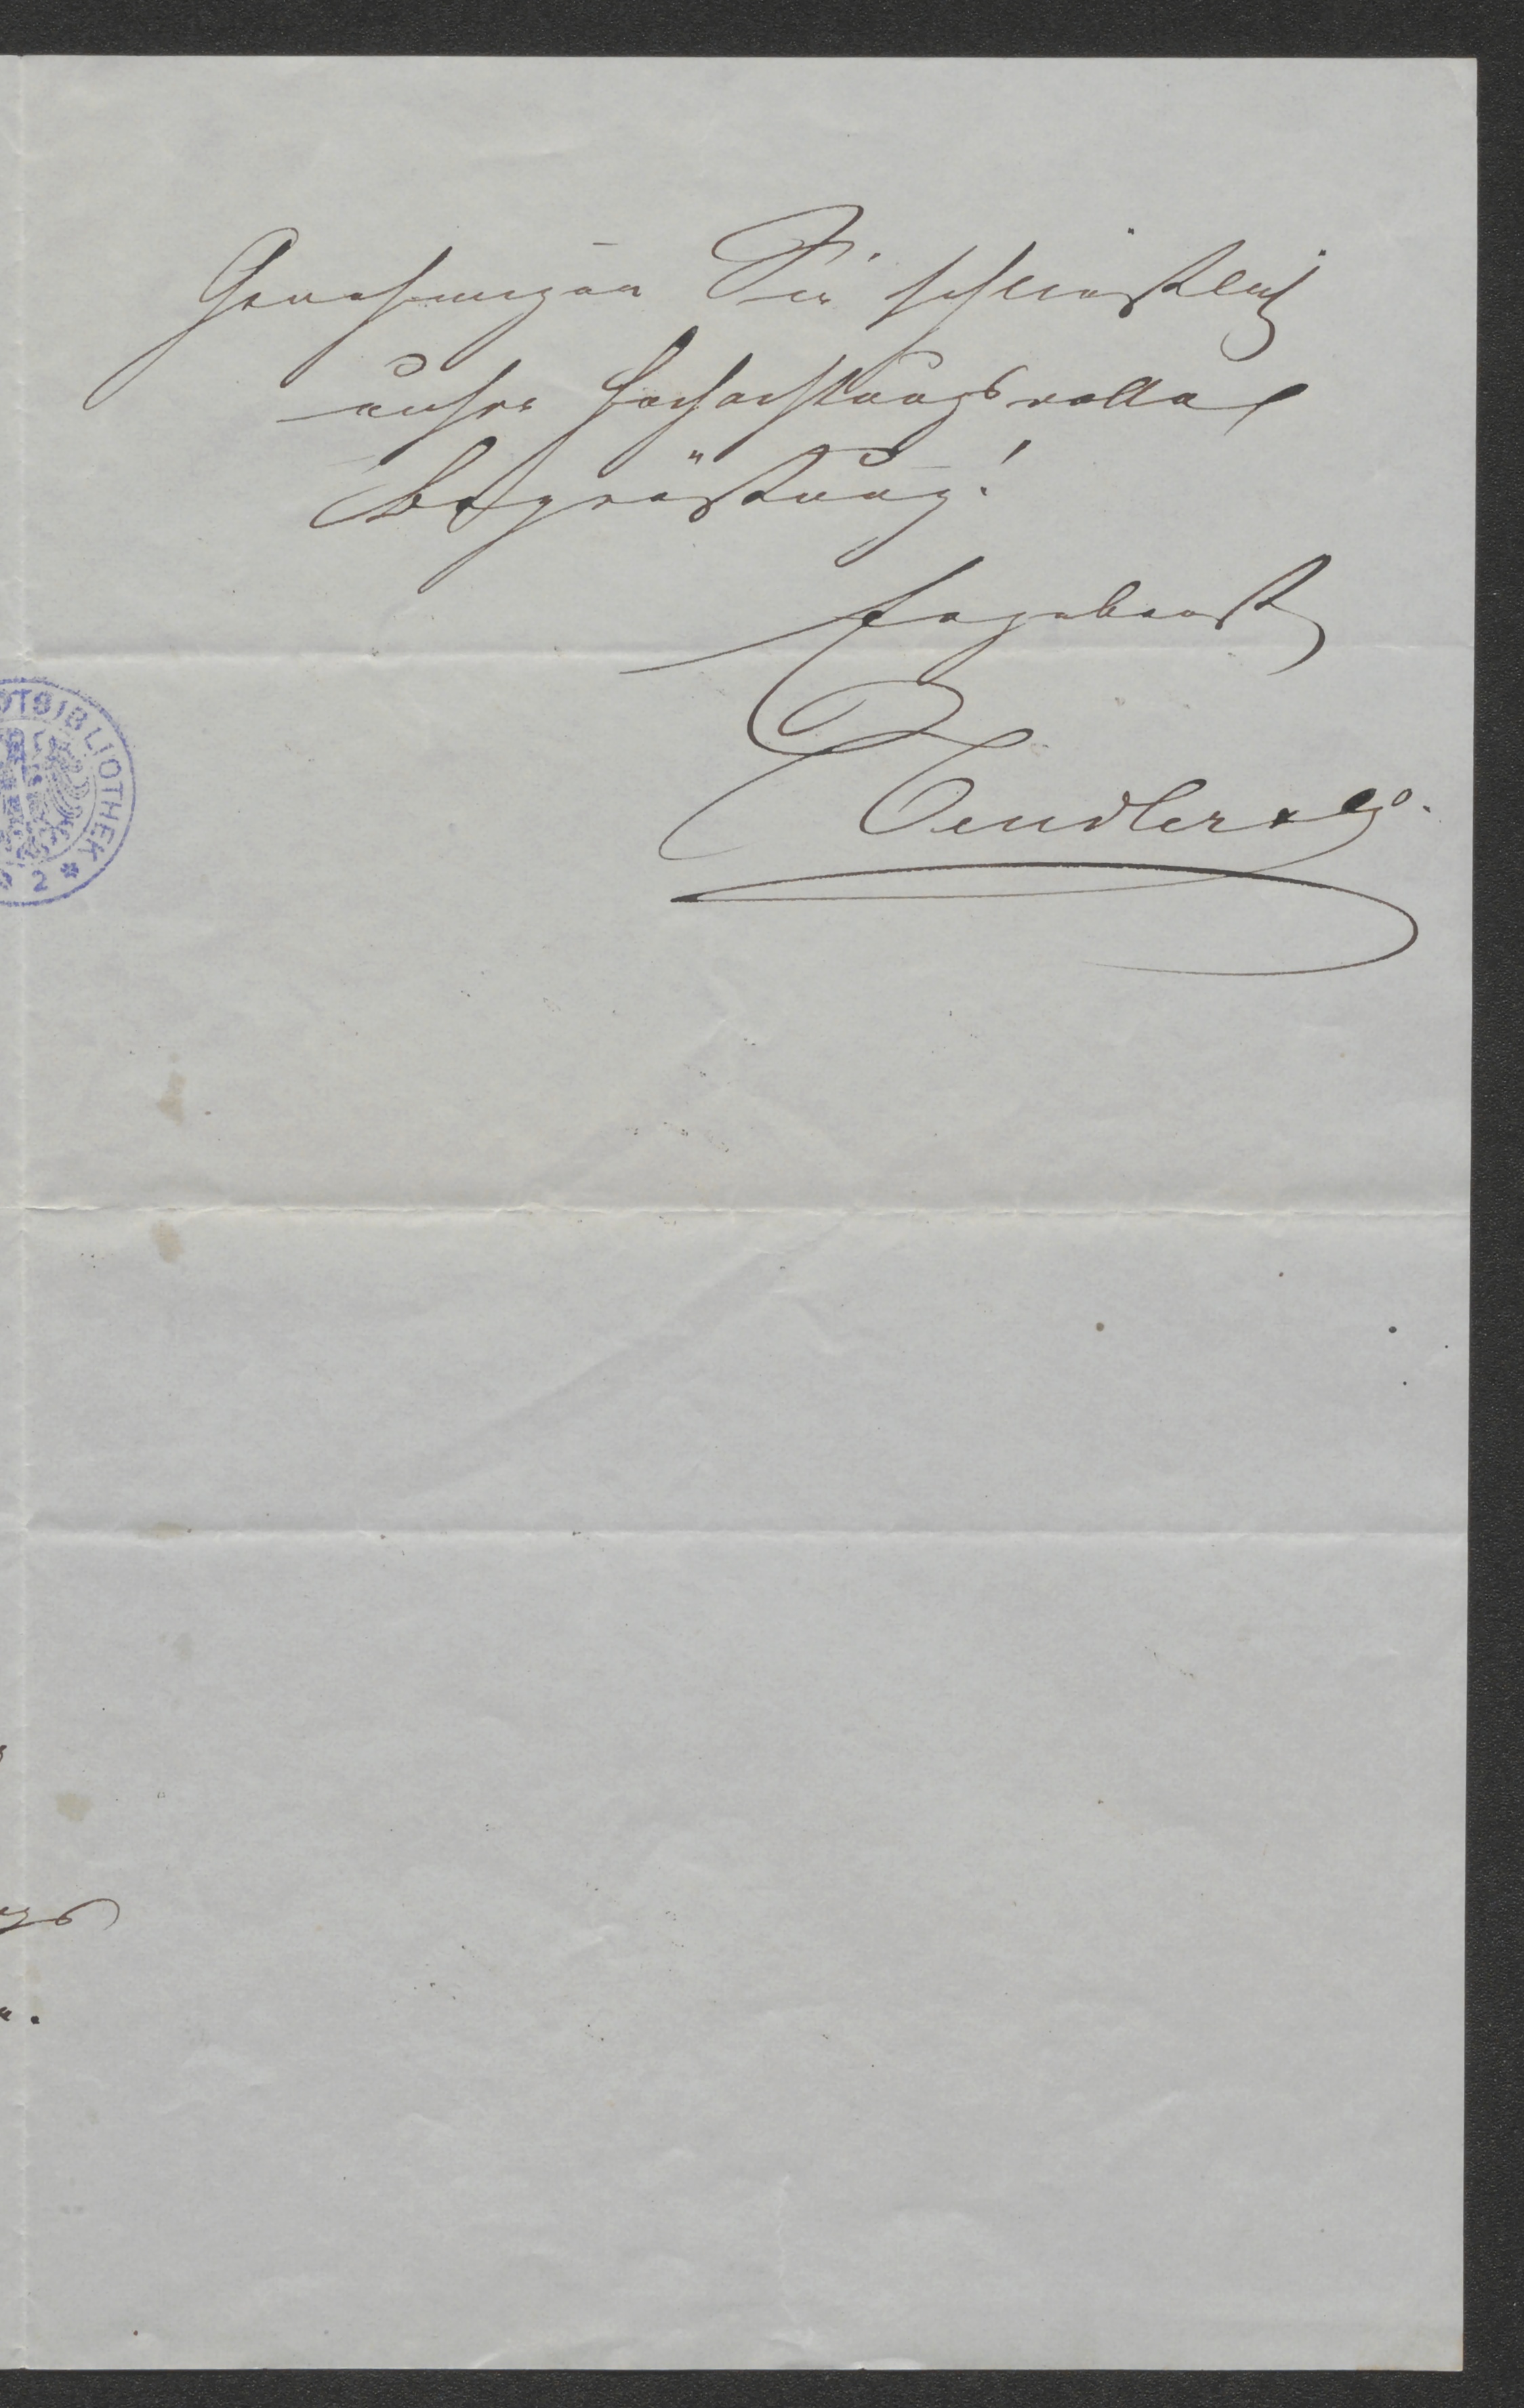 Genehmigen Sie schließlich
unsre hochachtungsvolle
Begrüßung!
Ergebenst
Tendler & Co.
DTBIBLIOTHEK
2